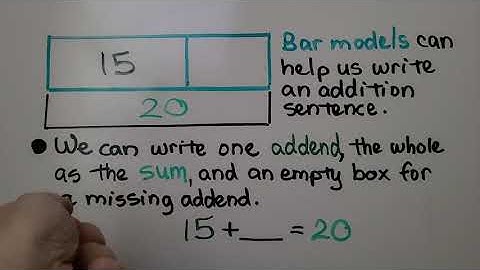 15
20
Bar models can
help us write
an addition
sentence.
● We can write one addend, the whole
as the sum, and an empty box for
a missing addend.
15 + __ = 20